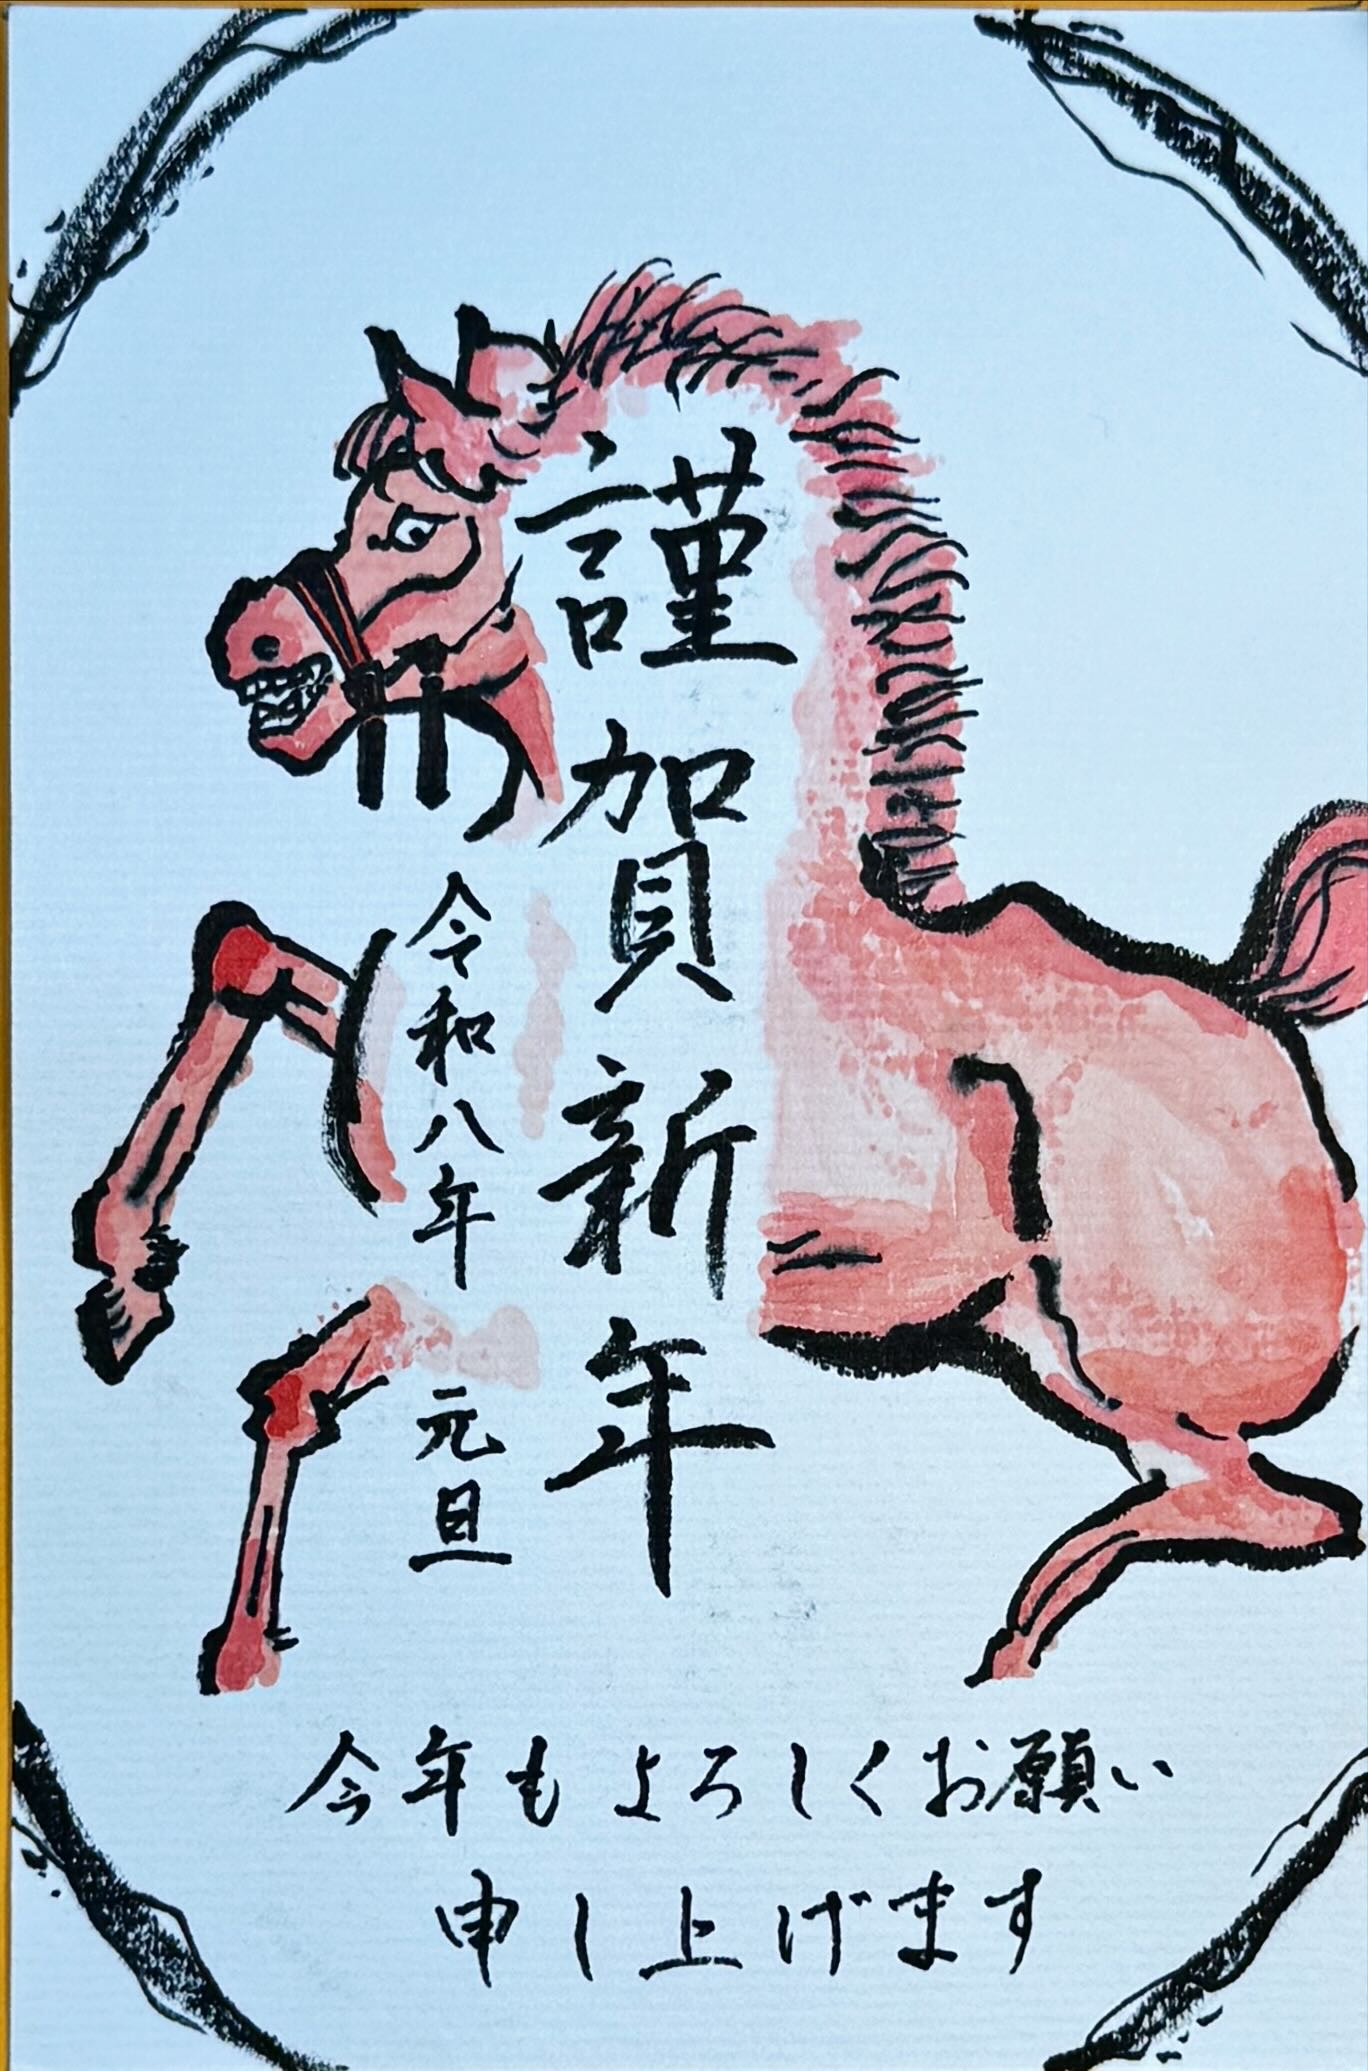 謹賀新年
令和八年 元旦
今年もよろしくお願い
申し上げます